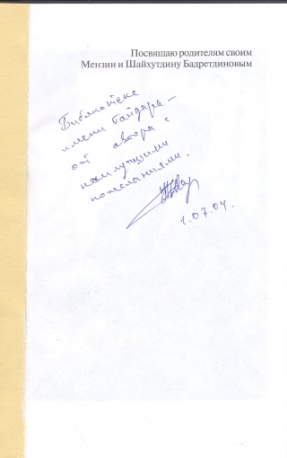 Посвящаю родителям своим
Мензии и Шайхутдину Бадретдиновым
Библиотеке
имени Гайдара –
от автора с
наилучшими
пожеланиями.
1.07.04.